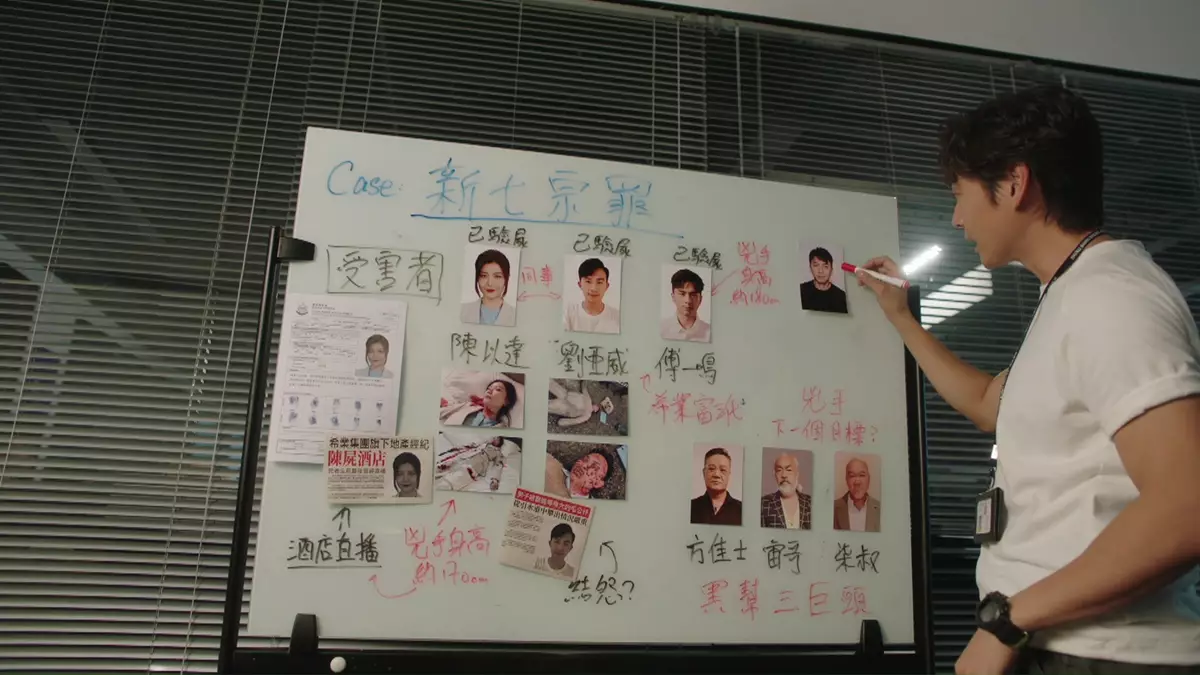 Case: 新七宗罪
受害者
已驗屍
已驗屍
已驗屍
同事
兇手
身高
約180cm
陳以達
劉恆威
傅一鳴
希業富三代
兇手
下一個目標?
希業集團旗下地產經紀
陳屍酒店
酒店直播
兇手身高
約170cm
結怨?
方佳士
雷哥
柴叔
黑幫三巨頭